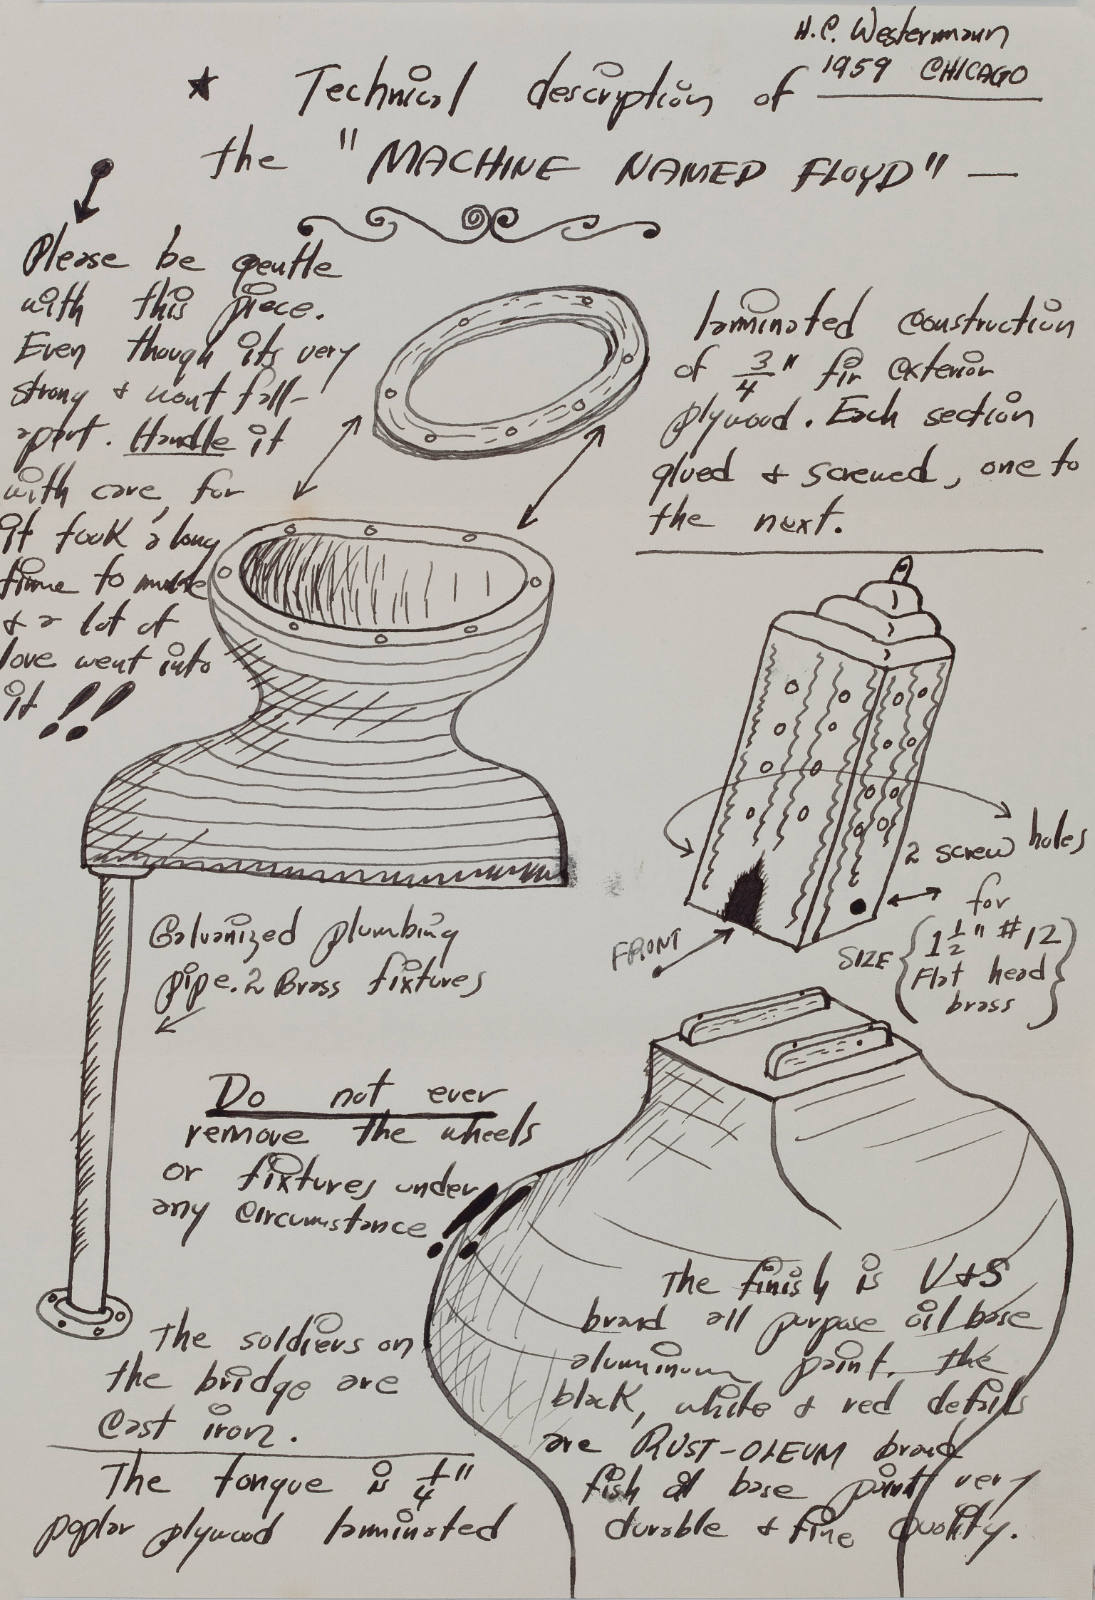 H.C. Westermann
1959 CHICAGO
★ Technical description of
the "MACHINE NAMED FLOYD" —
Please be gentle
with this piece.
Even though its very
strong & wont fall-
apart. Handle it
with care, for
it took a long
time to make
& a lot of
love went into
it!!
laminated construction
of 3/4" fir exterior
plywood. Each section
glued & screwed, one to
the next.
2 screw holes
for
SIZE { 1 1/2" #12
Flat head
brass }
FRONT
Galvanized plumbing
pipe. 2 Brass fixtures
Do not ever
remove the wheels
or fixtures under
any circumstance!!
The soldiers on
the bridge are
cast iron.
The tongue is 1/4"
poplar plywood laminated
The finish is V&S
brand all purpose oil base
aluminum paint. the
black, white & red details
are RUST-OLEUM brand
fish oil base paint very
durable & fine quality.